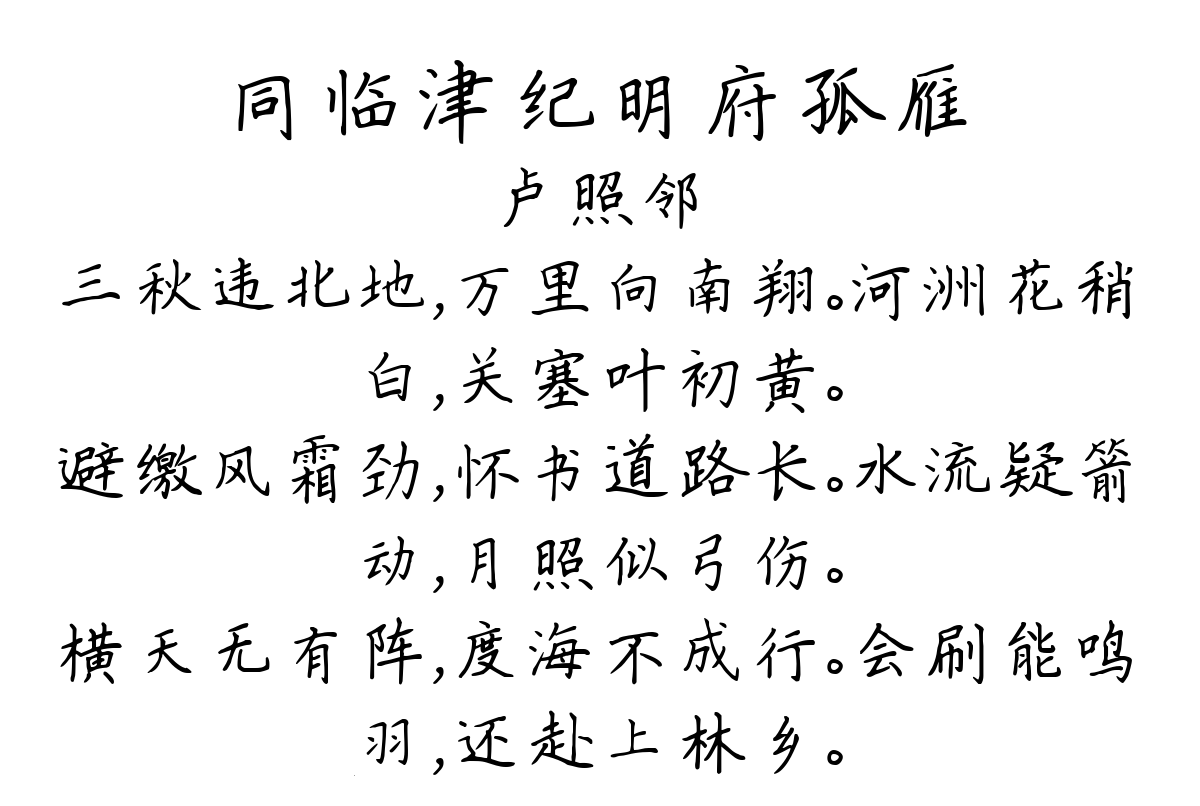 同临津纪明府孤雁
卢照邻
三秋违北地,万里向南翔。河洲花稍
白,关塞叶初黄。
避缴风霜劲,怀书道路长。水流疑箭
动,月照似弓伤。
横天无有阵,度海不成行。会刷能鸣
羽,还赴上林乡。